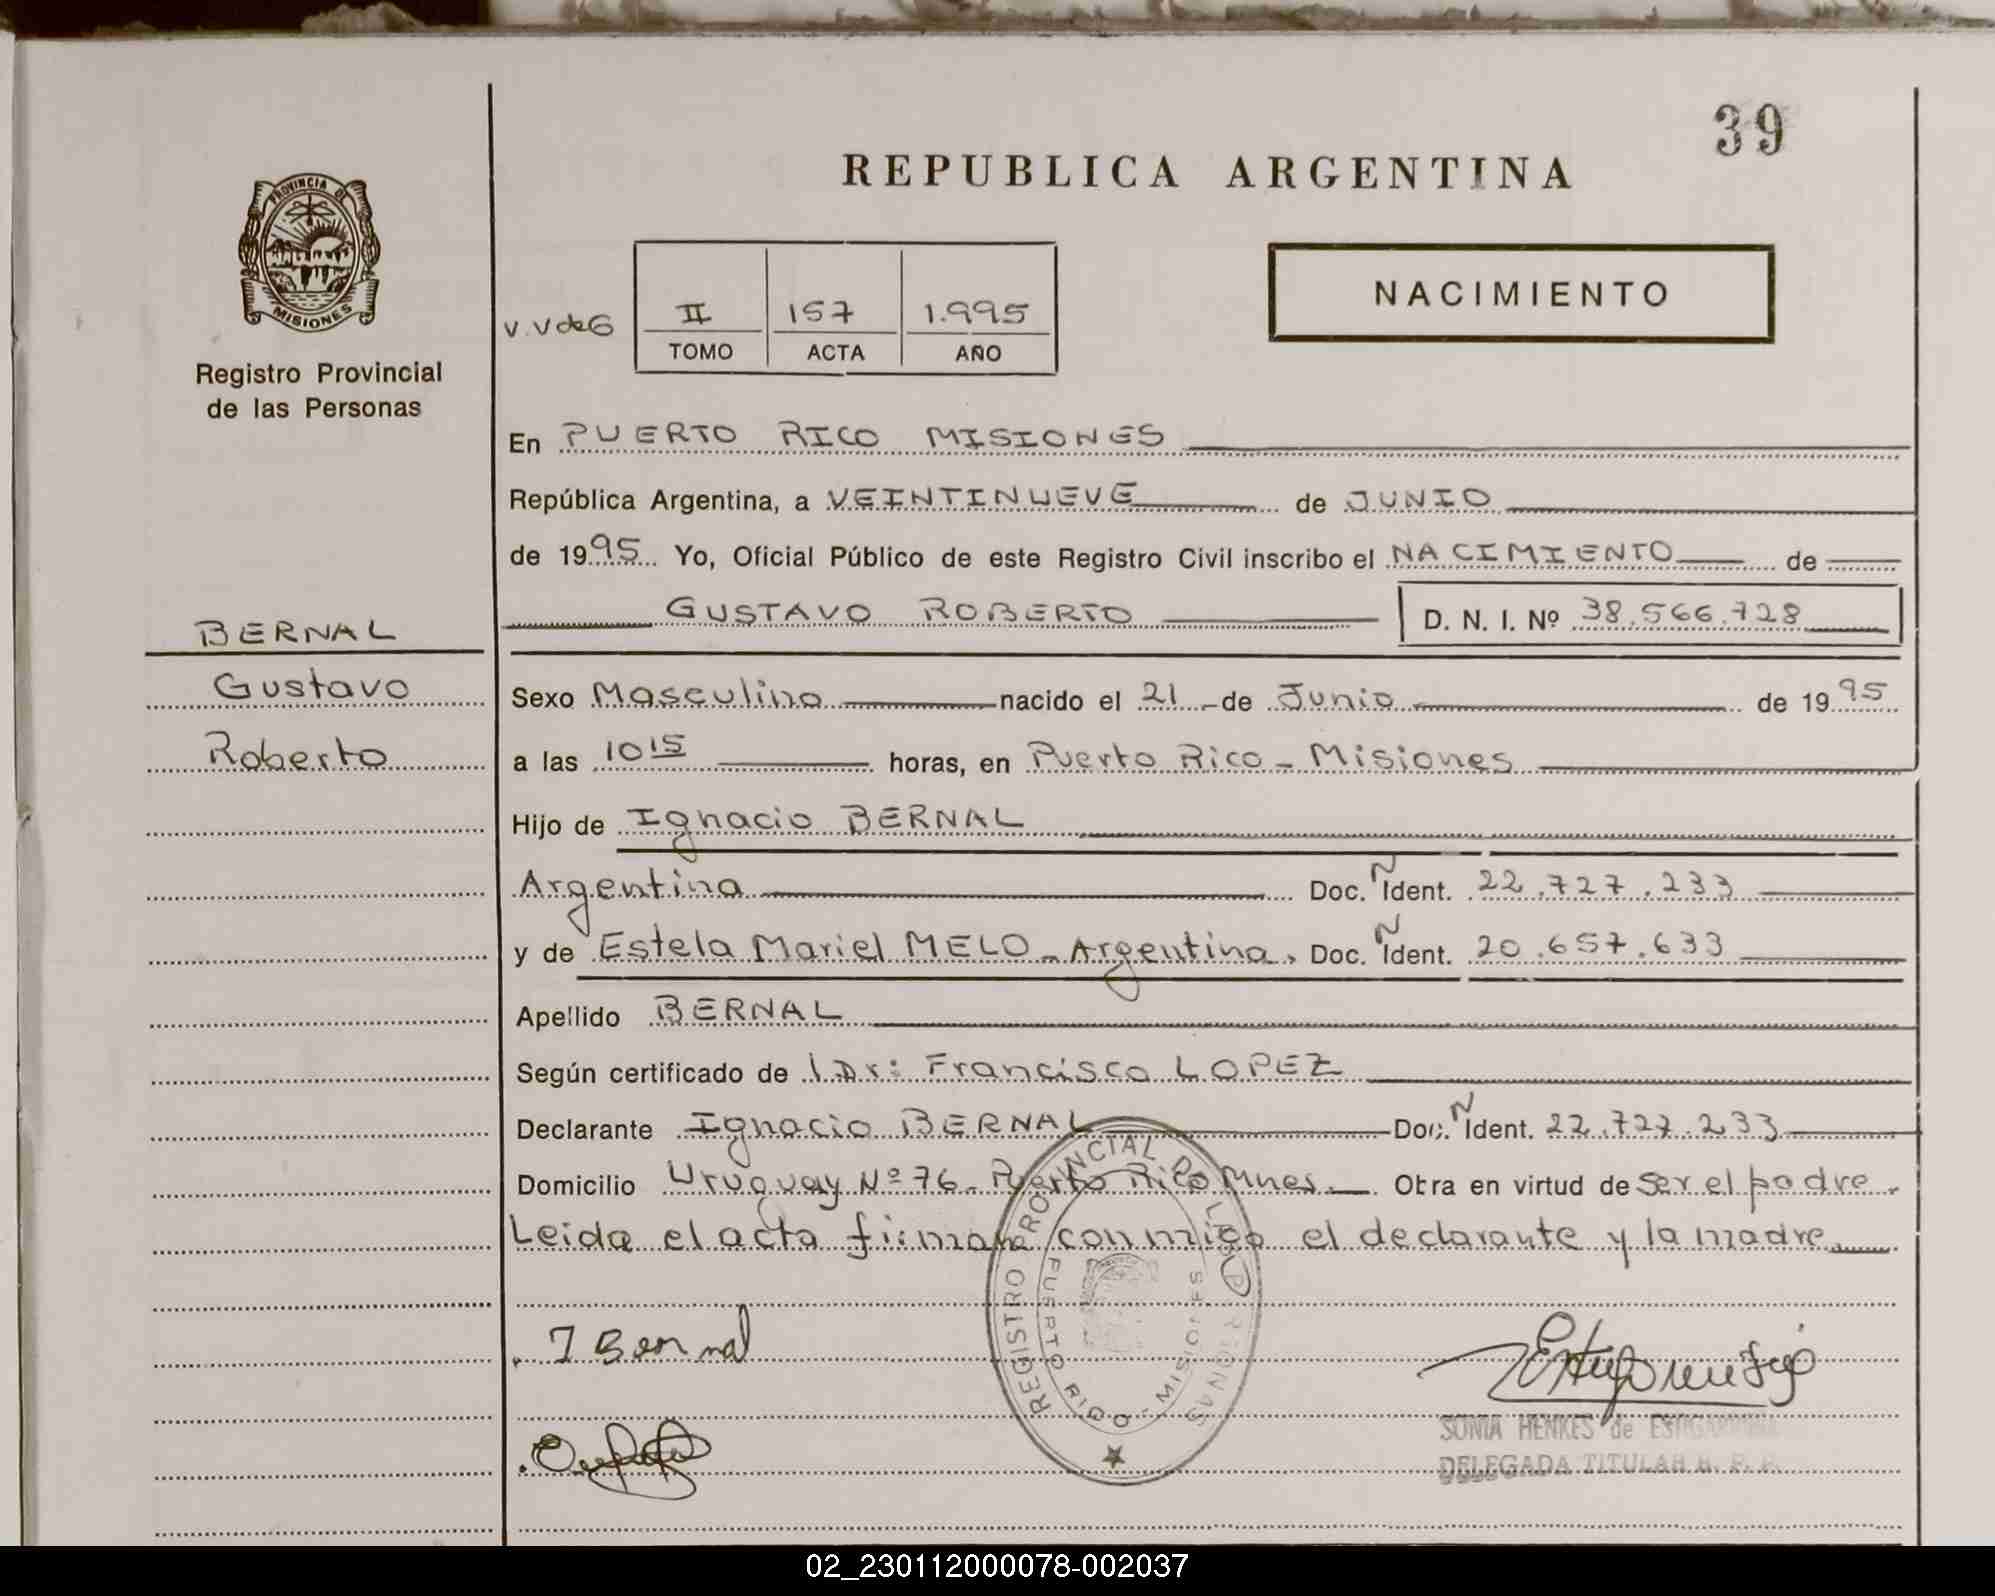 39
REPUBLICA ARGENTINA
PROVINCIA DE
MISIONES
Registro Provincial
de las Personas
NACIMIENTO
V.VdeG
II 157 1.995
TOMO ACTA AÑO
En PUERTO RICO MISIONES
República Argentina, a VEINTINUEVE de JUNIO
de 1995 Yo, Oficial Público de este Registro Civil inscribo el NACIMIENTO de
GUSTAVO ROBERTO D. N. I. Nº 38.566.728
BERNAL
Gustavo
Roberto
Sexo Masculino nacido el 21 de Junio de 1995
a las 10 15 horas, en Puerto Rico - Misiones
Hijo de Ignacio BERNAL
Argentina Doc. N Ident. 22.727.233
y de Estela Mariel MELO - Argentina. Doc. N Ident. 20.657.633
Apellido BERNAL
Según certificado de l Dr: Francisco LOPEZ
Declarante Ignacio BERNAL Doc. N Ident. 22.727.233
Domicilio Uruguay Nº 76 - Puerto Rico Mnes. Obra en virtud de ser el padre.
Leida el acta firman conmigo el declarante y la madre
REGISTRO PROVINCIAL DE LAS PERSONAS
PUERTO RICO - MISIONES
I Bernal
SONIA HENKES de ESTIGARRIBIA
DELEGADA TITULAR R. P. P.
02_230112000078-002037